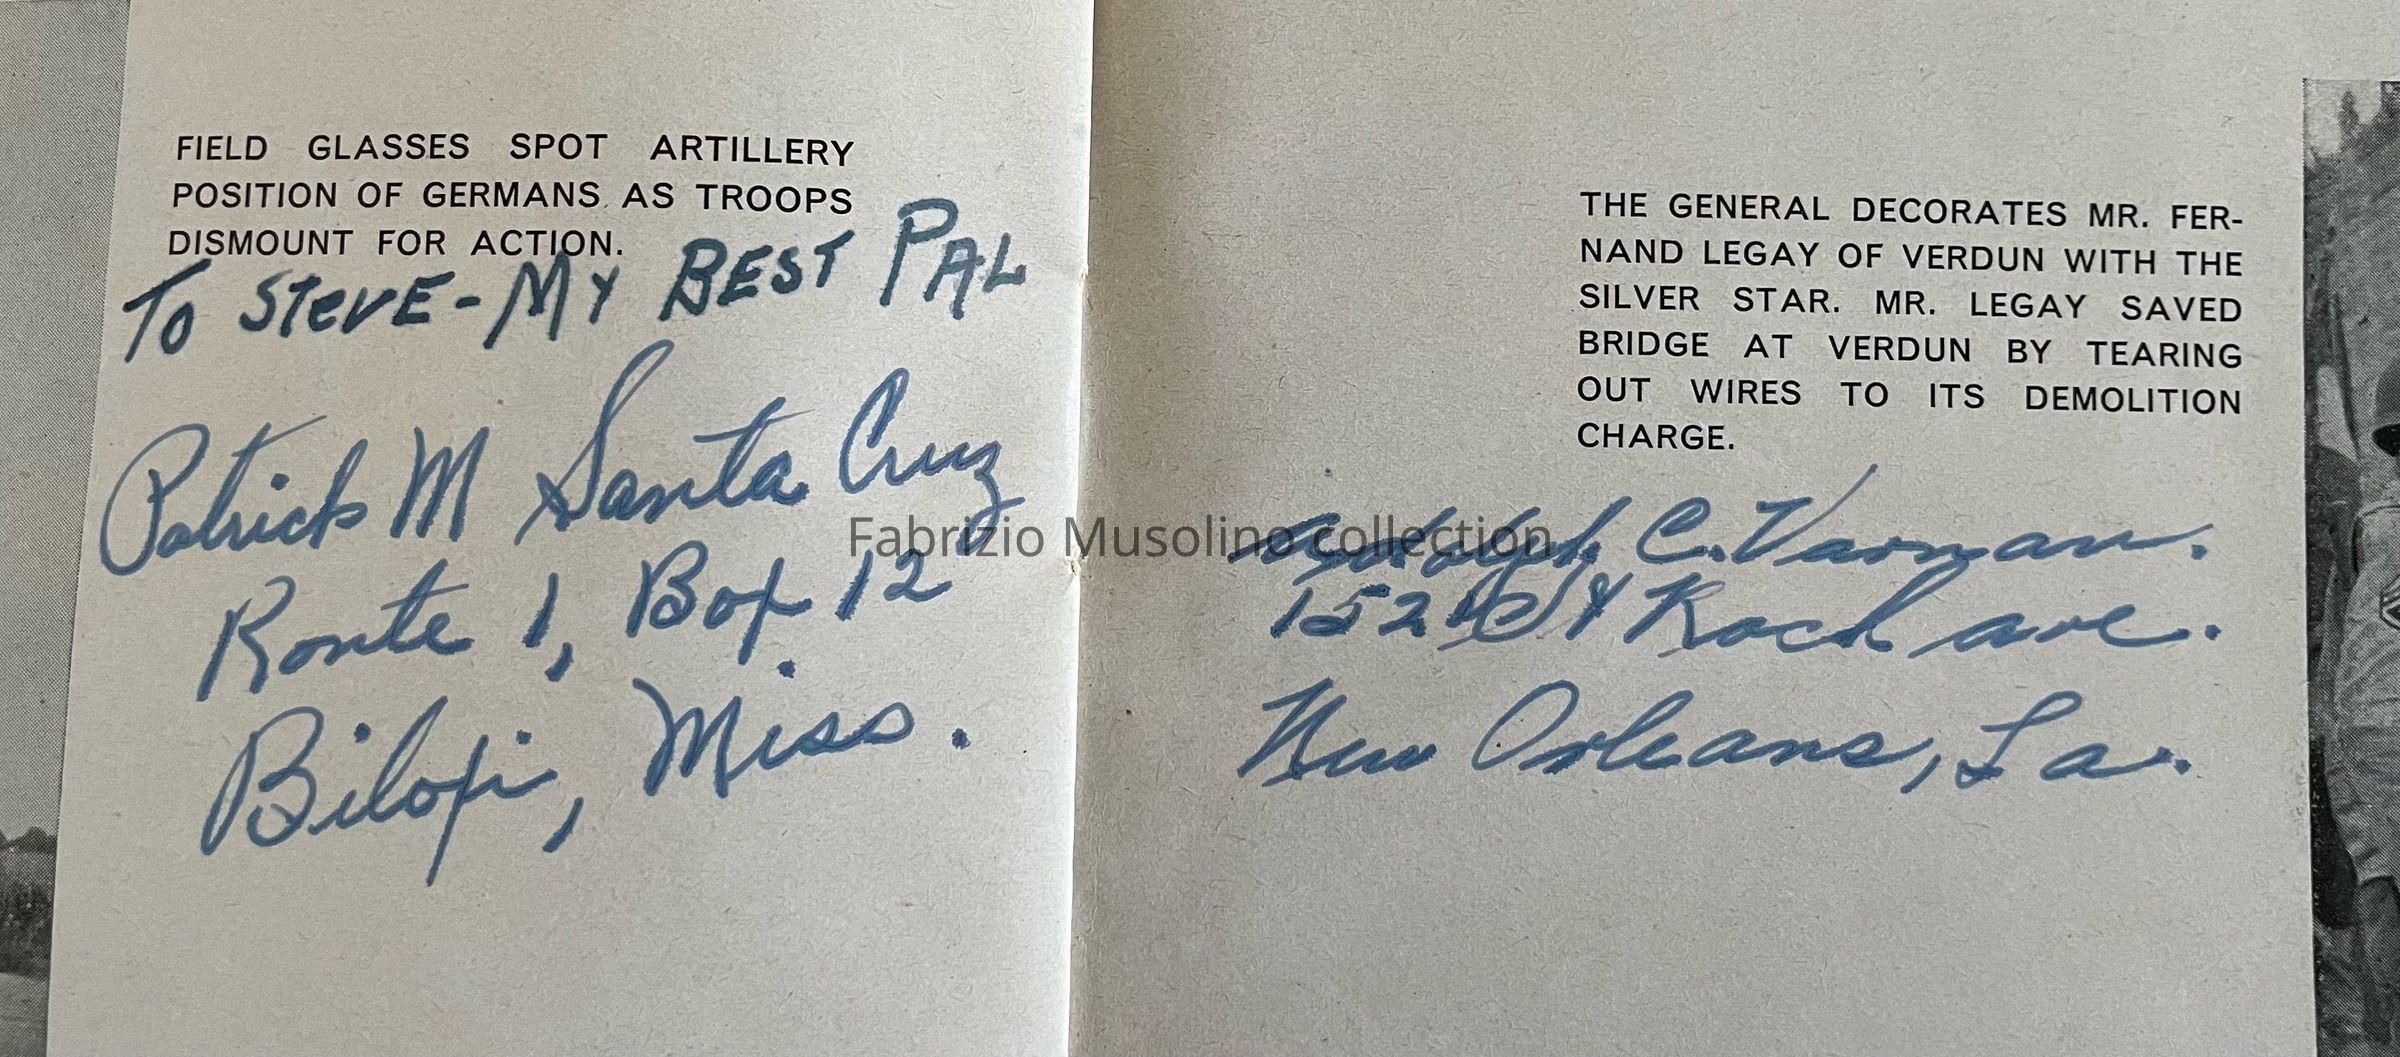 FIELD GLASSES SPOT ARTILLERY
POSITION OF GERMANS AS TROOPS
DISMOUNT FOR ACTION.
TO STEVE - MY BEST PAL
Patrick M Santa Cruz
Route 1, Box 12
Biloxi, Miss.
THE GENERAL DECORATES MR. FER-
NAND LEGAY OF VERDUN WITH THE
SILVER STAR. MR. LEGAY SAVED
BRIDGE AT VERDUN BY TEARING
OUT WIRES TO ITS DEMOLITION
CHARGE.
Adolph C.
Roch ave.
New Orleans, La.
Fabrizio Musolino collection